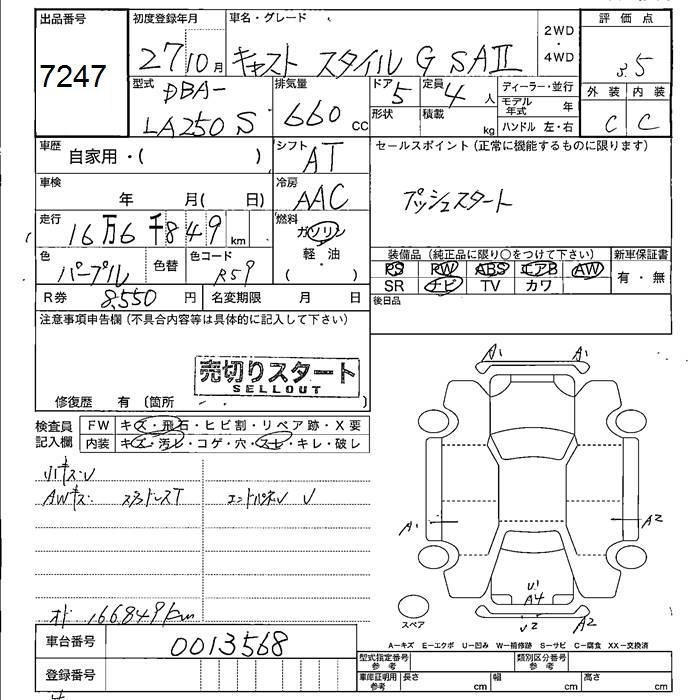 出品番号
7247
初度登録年月
27 10月
車名・グレード
キャスト スタイル G SAⅡ
2WD
・
4WD
評価点
3.5
外装 内装
C C
型式
DBA-
LA250S
排気量
660 cc
ドア
5
定員
4人
形状
積載
kg
ディーラー・並行
モデル年式 年
ハンドル 左・右
車歴
自家用・( )
シフト
AT
セールスポイント (正常に機能するものに限ります)
プッシュスタート
車検
年 月( 日)
冷房
AAC
走行
16万6千849 km
燃料
ガソリン
軽・油
( )
色
パープル
色替
色コード
R59
装備品 (純正品に限り○をつけて下さい)
PS PW ABS エアB AW
SR ナビ TV カワ
新車保証書
有・無
R券 8,550 円
名変期限 月 日
後日品
注意事項申告欄 (不具合内容等は具体的に記入して下さい)
売切りスタート
SELLOUT
修復歴 有 (箇所 )
検査員
記入欄
FW キズ・飛石・ヒビ割・リペア跡・X要
内装 キズ・汚レ・コゲ・穴・スレ・キレ・破レ
小キズ・U
AWキズ スタッドレスT エンドパネル U
オド 166.849km
A1 A1
A1 A2
U1
A4
U2 A2
スペア
車台番号
0013568
登録番号
A-キズ E-エクボ U-凹み W-補修跡 S-サビ C-腐食 XX-交換済
型式指定番号
参考
類別区分番号
参考
車庫証明用
参考
長さ cm
幅 cm
高さ cm